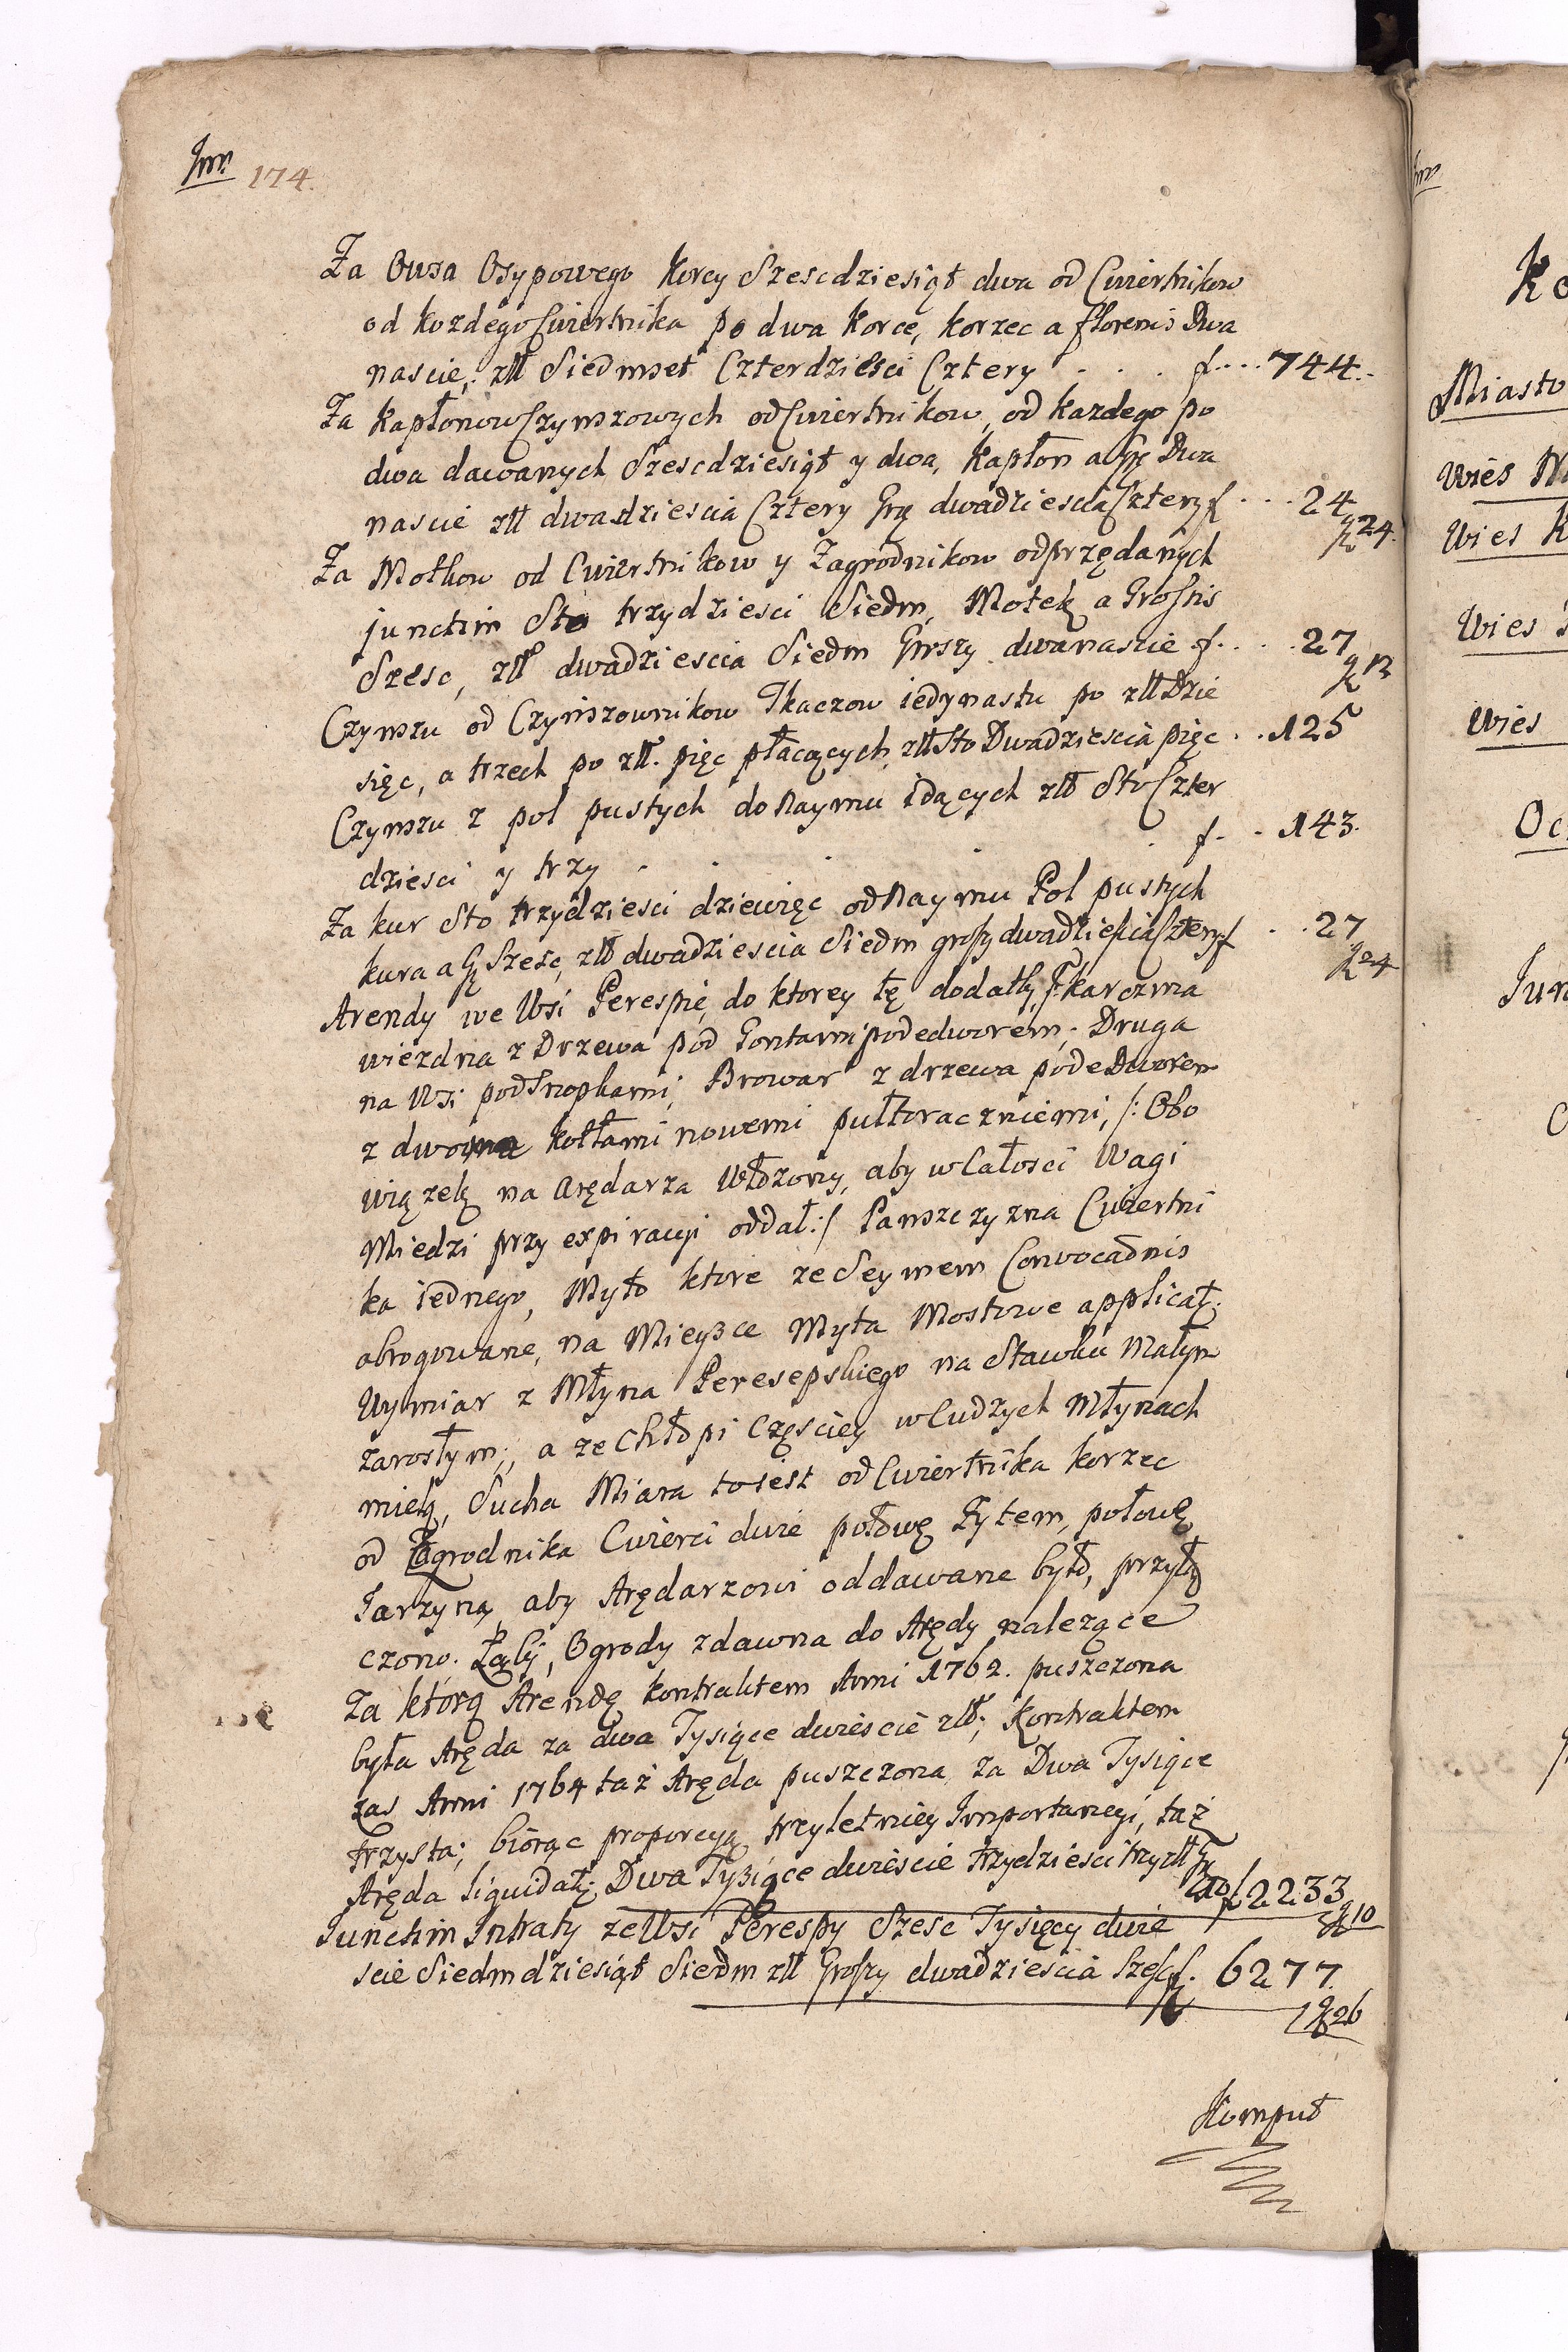 Inv. 174.
Za Owsa Osypowego Korcy Szescdziesiąt dwa od Cwiertnikow
od kozdego Cwiertnika po dwa Korce, korzec a florenis Dwa
nascie, zł Siedmset Czterdziesci Cztery . . . f.... 744.-
Za Kapłonow Czynszowych od Cwiertnikow, od kazdego po
dwa dawanych Szescdziesiąt y dwa, Kapłon a gr Dwa
nascie zł dwadziescia Cztery Gry dwadziescia Cztery f . . . 24
gr 24.
Za Motkow od Cwiertnikow y Zagrodnikow odprzędanych
junctim Sto trzydziesci Siedm, Motek a Grossis
Szesc, zł dwadziescia Siedm Groszy dwanascie f . . . 27
gr 12
Czynszu od Czynszownikow Tkaczow iedynastu po zł Dzie
sięc, a trzech po zł. pięc płacących, zł Sto Dwadziescia pięc . . 125
Czynszu z pol pustych do Naymu idących zł Sto Czter
dziesci y trzy . . . . f. . 143.
Za kur Sto trzydziesci dziewięc od Naymu Pol pustych
kura a gr Szesc, zł dwadziescia Siedm groszy dwadziescia Cztery f . . 27
gr 24
Arendy we Wsi Perespie, do ktorey tę dodatki, /: Karczma
wiezdna z Drzewa pod Gontami podedworem; Druga
na Wsi pod Snopkami, Browar z drzewa pode Dworem
z dwoma kotłami nowemi pułtoracznemi, /: Obo
wiązek na Arędarza włozony, aby w Całosci Wagi
Miedzi przy expiracyi oddał :/ Panszczyzna Cwiertni
ka iednego, Myto ktore ze Seymem Convocaonis
abrogowane, na Mieysce Myta Mostowe applicat;
Wymiar z Młyna Peresepskiego na Stawku Małym
zarosłym;, a ze Chłopi Częsciey w Cudzych Młynach
mielą, Sucha Miara to iest od Cwiertnika korzec
od Zagrodnika Cwierci dwie połowę Zytem, połowę
Jarzyną, aby Arędarzowi oddawane było, przyłą
czono. Łąki, Ogrody zdawna do Arędy nalezące
Za ktorą Arendę kontraktem Anni 1762. puszczona
była Aręda za dwa Tysiące dwiescie zł; Kontraktem
zas Anni 1764 taż Aręda puszczona za Dwa Tysiące
trzysta; biorąc proporcyą trzyletniey Importancyi, taż
Aręda liquidat; Dwa Tysiące dwiescie trzydziesci trzy zł gr
10 f 2233
gr 10
Junctim Intraty ze Wsi Perespy Szesc Tysięcy dwie
scie Siedmdziesiąt Siedm zł Groszy dwadziescia Szesc f. 6277
gr 26
Komput
Ko
Miasto
Wies
Wies K
Wies
Wies